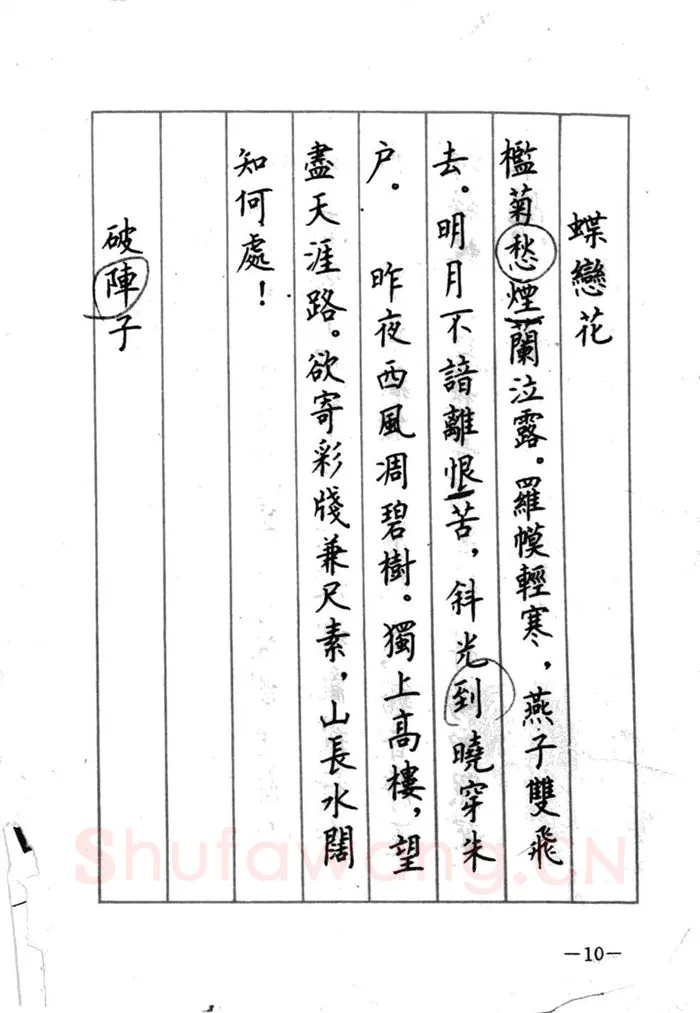 蝶戀花
檻菊愁煙蘭泣露。羅幙輕寒，燕子雙飛
去。明月不諳離恨苦，斜光到曉穿朱
户。　昨夜西風凋碧樹。獨上高樓，望
盡天涯路。欲寄彩牋兼尺素，山長水闊
知何處！
破陣子
—10—
Shufawang.CN